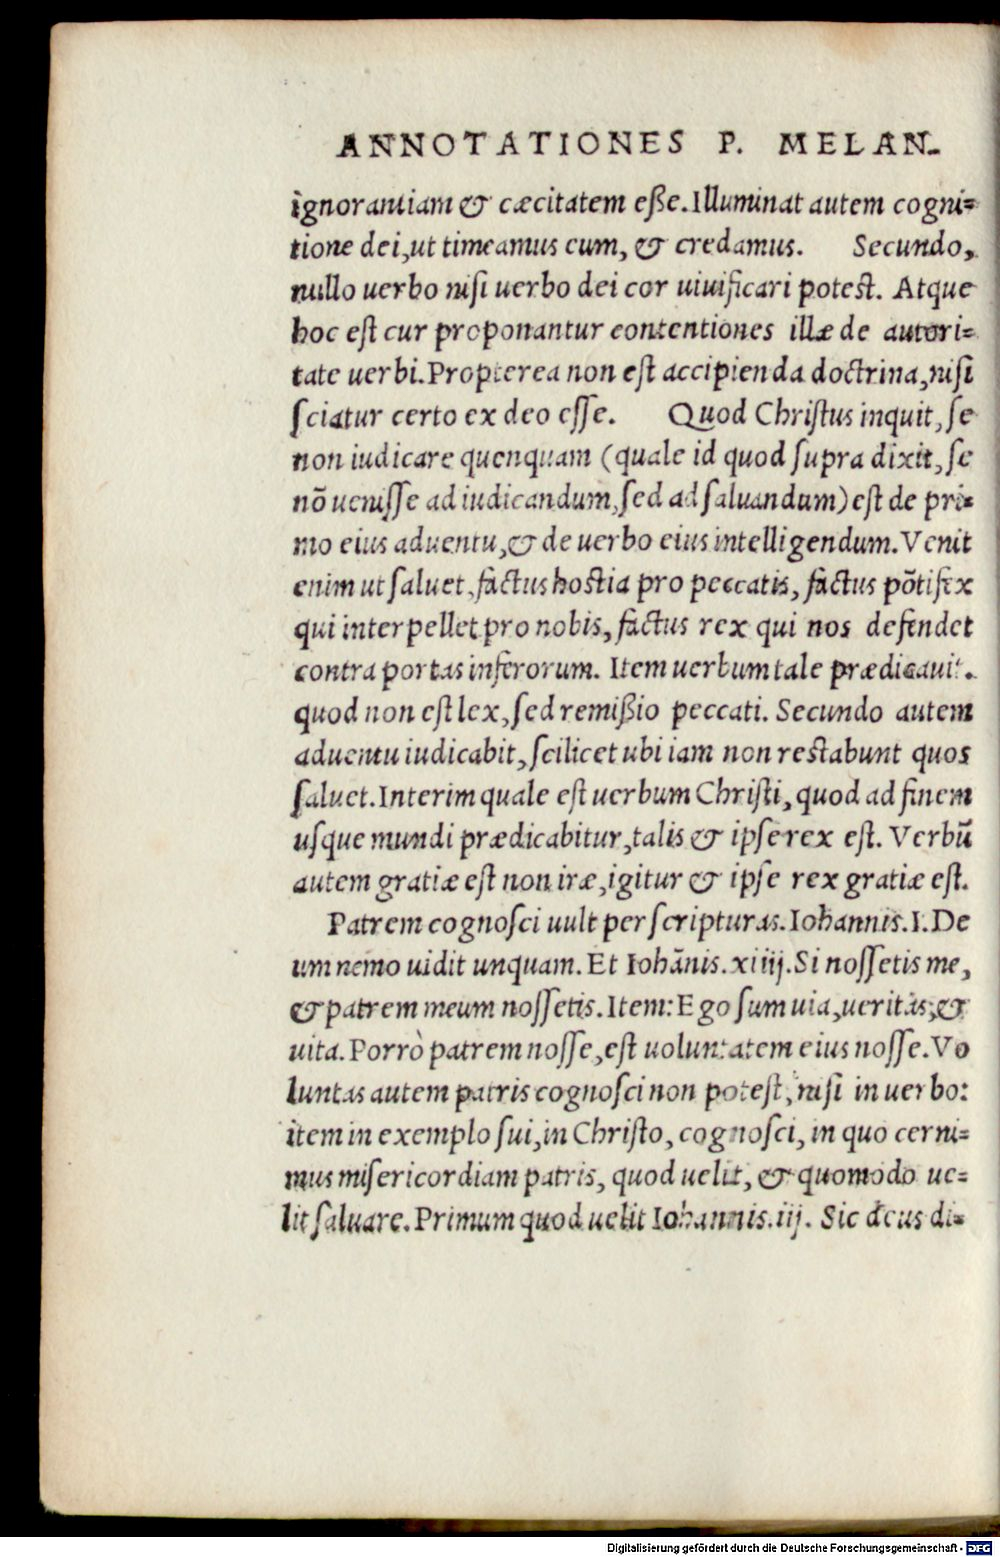 ANNOTATIONES P. MELAN.
ignorantiam & cæcitatem eße. Illuminat autem cogni=
tione dei, ut timeamus eum, & credamus. Secundo,
nullo uerbo nisi uerbo dei cor uiuificari potest. Atque
hoc est cur proponantur contentiones illæ de autori=
tate uerbi. Propterea non est accipienda doctrina, nisi
sciatur certo ex deo esse. Quod Christus inquit, se
non iudicare quenquam (quale id quod supra dixit, se
nō uenisse ad iudicandum, sed ad saluandum) est de pri=
mo eius aduentu, & de uerbo eius intelligendum. Venit
enim ut saluet, factus hostia pro peccatis, factus pōtifex
qui interpellet pro nobis, factus rex qui nos defendet
contra portas inferorum. Item uerbum tale prædicauit.
quod non est lex, sed remißio peccati. Secundo autem
aduentu iudicabit, scilicet ubi iam non restabunt quos
saluet. Interim quale est uerbum Christi, quod ad finem
usque mundi prædicabitur, talis & ipse rex est. Verbū
autem gratiæ est non iræ, igitur & ipse rex gratiæ est.
Patrem cognosci uult per scripturas. Iohannis. I. De
um nemo uidit unquam. Et Iohānis. xiiij. Si nossetis me,
& patrem meum nossetis. Item: Ego sum uia, ueritas, &
uita. Porrò patrem nosse, est uoluntatem eius nosse. Vo
luntas autem patris cognosci non potest, nisi in uerbo:
item in exemplo sui, in Christo, cognosci, in quo cerni=
mus misericordiam patris, quod uelit, & quomodo ue=
lit saluare. Primum quod uelit Iohannis. iij. Sic deus di=
Digitalisierung gefördert durch die Deutsche Forschungsgemeinschaft - DFG